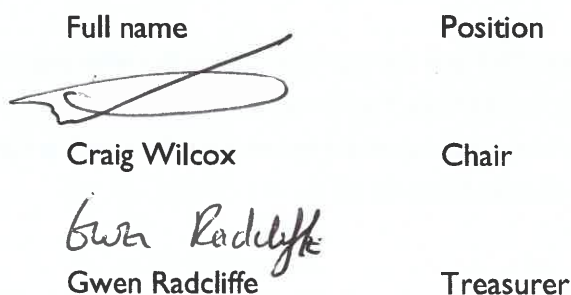 Full name Position
Craig Wilcox Chair
Gwen Radcliffe
Gwen Radcliffe Treasurer